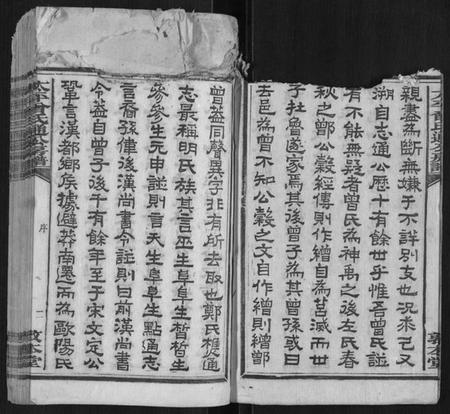 親盡為斷無嫌于不詳別支也況桼己又
朔自志通公歷十有餘世乎惟吾曾氏譜
有不能無疑者曾氏為神禹之後左氏春
秋之鄫公穀經傳則作繒自為莒滅而世
子壯魯遂家焉其後曾子為其曾孫或曰
去邑為曾不知公穀之文自作繒則繒鄫
曾葢同聲異字非有所去取也鄭氏樵通
志最稱明氏族其言巫生阜阜生晳晳生
參參生元申註則言天生阜阜生點通志
言裔孫偉後漢尚書令註則曰前漢尚書
令葢自曾子後千有餘年至于宋文定公
鞏言漢都鄉矦據避莽南遷而為歐陽氏
曾氏通公族譜
序
敦本堂
曾氏通公族譜
敦本堂